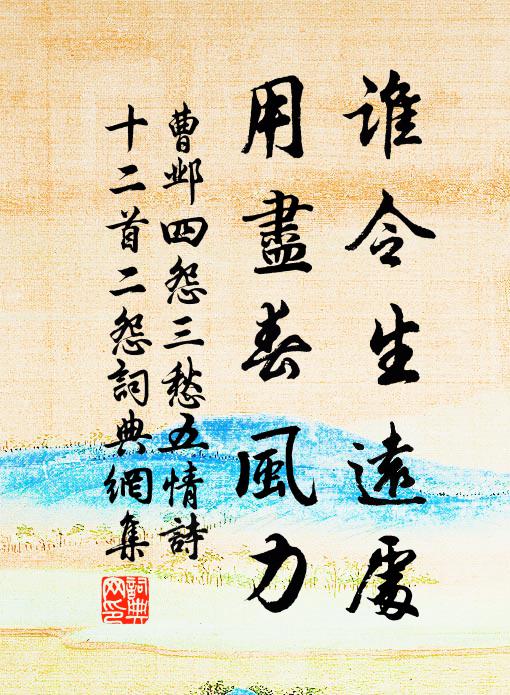 誰令生遠處
用盡春風力
曹邺四怨三愁五情詩
十二首二怨詞典網集
詞典網印